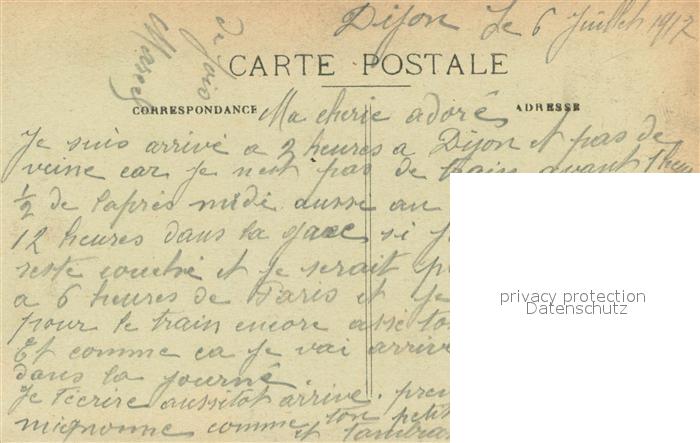 Dijon Le 6 Juillet 1917
CARTE POSTALE
CORRESPONDANCE
ADRESSE
Ma cherie adoré
Je suis arrivé a 2 heures a Dijon et pas de
veine car je nest pas de train avant 1 heu
½ de laprès midi aussi au
12 heures dans la gare si j
reste couché et je serait p
a 6 heures de Paris et je
pour le train encore asse to
Et comme ca je vai arrive
dans la journé
Je técrire aussitot arrivé. pren
mignonne comme ton petit
et tambra
privacy protection
Datenschutz